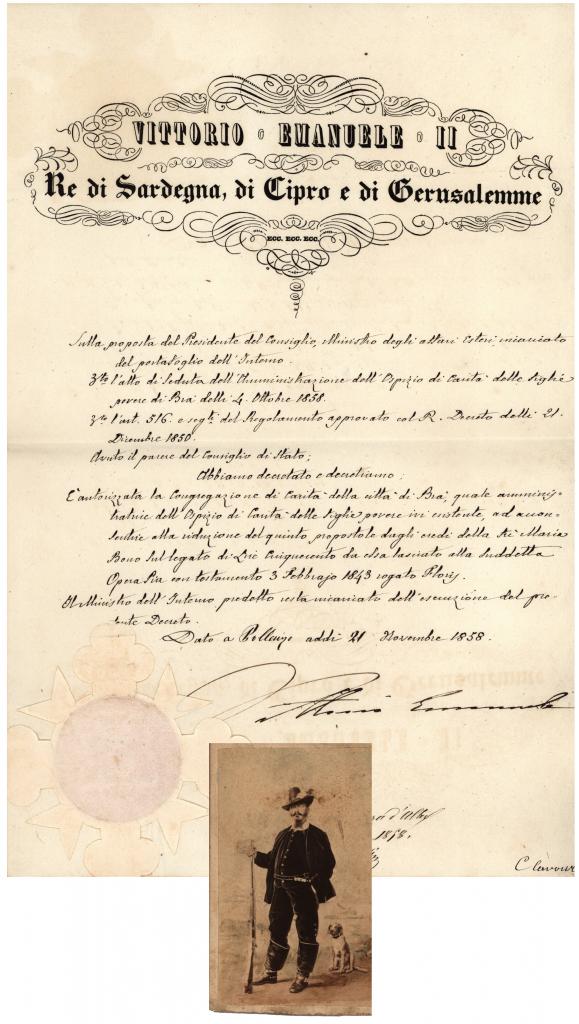 VITTORIO EMANUELE II
Re di Sardegna, di Cipro e di Gerusalemme
ECC. ECC. ECC.
Sulla proposta del Presidente del Consiglio, Ministro degli affari Esteri, incaricato
del portafoglio dell'Interno.
V.to l'atto di seduta dell'Amministrazione dell'Ospizio di Carità delle figlie
povere di Bra delli 4. Ottobre 1858.
V.to l'art. 516. e seg.ti del Regolamento approvato col R. Decreto delli 21.
Dicembre 1850.
Avuto il parere del Consiglio di Stato;
Abbiamo decretato e decretiamo;
È autorizzata la Congregazione di Carità della città di Bra, quale amminis-
tratrice dell'Ospizio di Carità delle figlie povere ivi esistente, ad accon-
sentire alla riduzione del quinto, propostole dagli eredi della fù Maria
Bono sul legato di Lire Cinquecento da essa lasciato alla suddetta
Opera Pia con testamento 3 Febbrajo 1843 rogato Floris.
Il Ministro dell'Interno predetto resta incaricato dell'esecuzione del pre-
sente Decreto.
Dato a Pollenzo addì 21 Novembre 1858.
Vittorio Emanuele
1858.
C Cavour